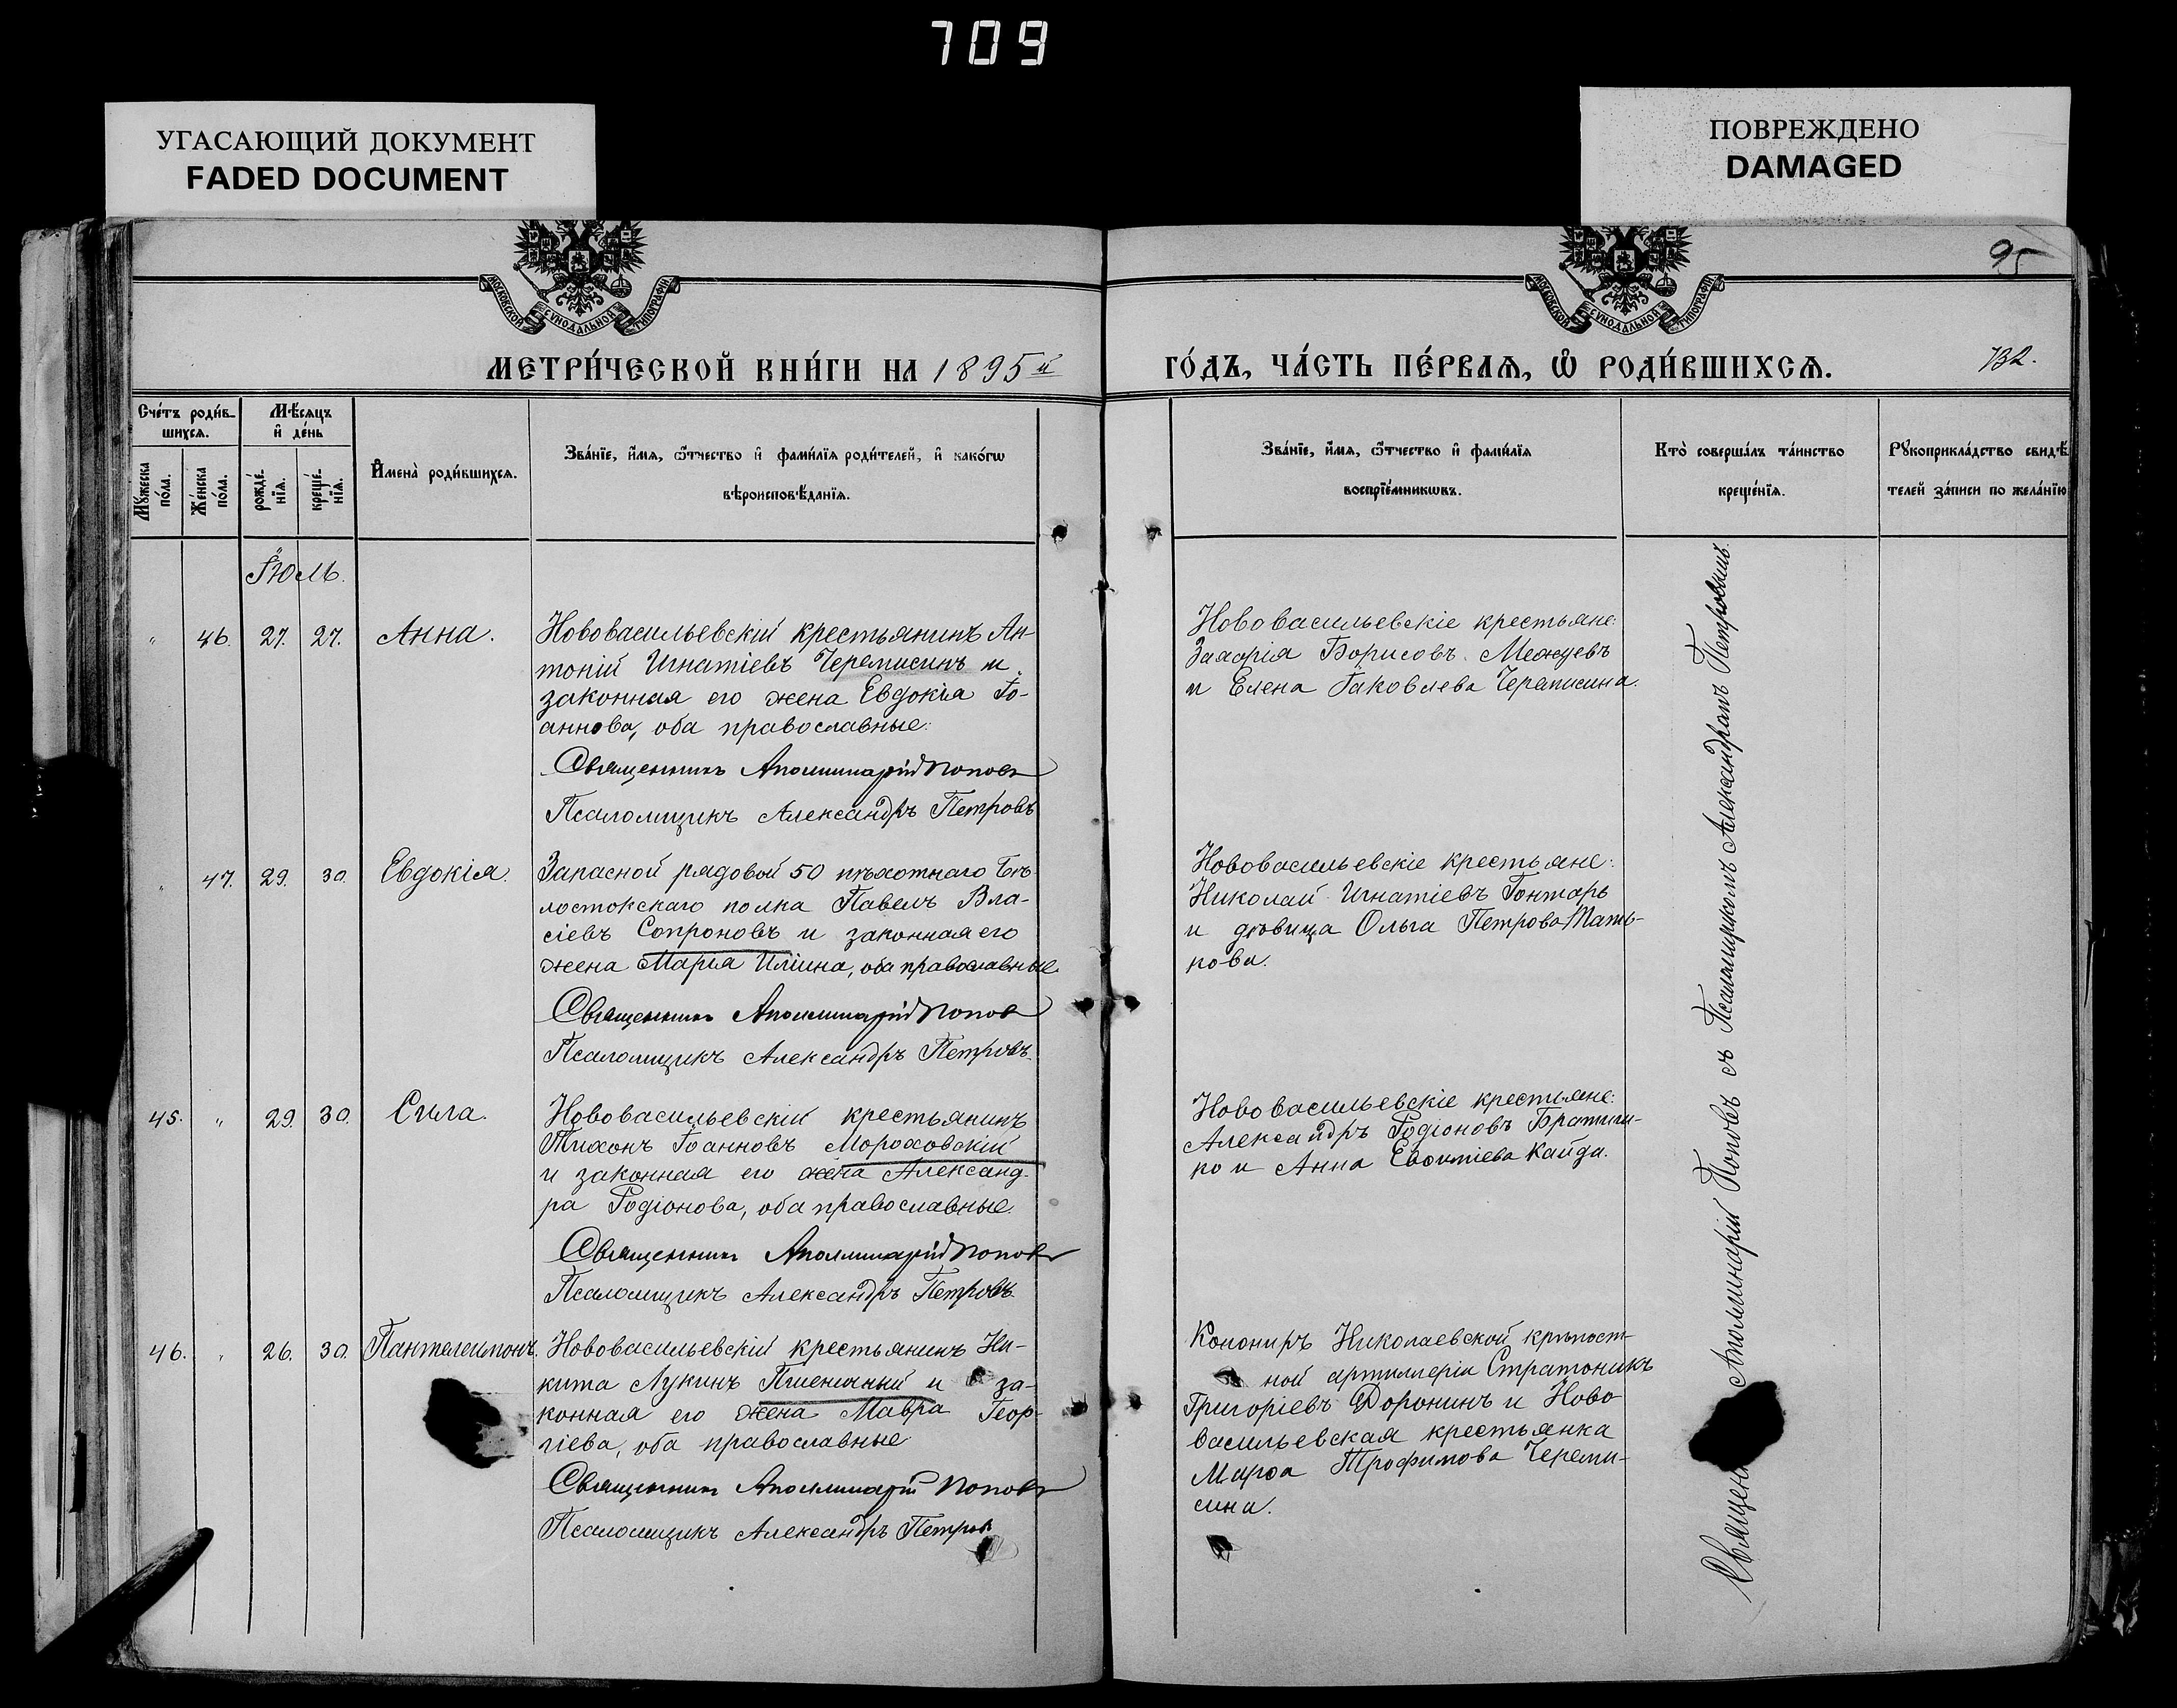 709
УГАСАЮЩИЙ ДОКУМЕНТ
FADED DOCUMENT
ПОВРЕЖДЕНО
DAMAGED
95
МОСКОВСКОЙ СѴНОДАЛЬНОЙ ТИПОГРАФІИ
МОСКОВСКОЙ СѴНОДАЛЬНОЙ ТИПОГРАФІИ
МЕТРИ́ЧЕСКОЙ КНИ́ГИ НА 1895й
ГО́ДЪ, ЧА́СТЬ ПЕ́РВАЯ, Ѡ РОДИ́ВШИХСЯ.
132.
Сче́тъ роди́в-
шихся.
Мѣ́сяцъ
и де́нь
Мꙋ́жеска по́ла.
Же́нска по́ла.
рожде́нїя.
креще́нїя.
И҆мена̀ роди́вшихся.
Зва́нїе, и҆́мя, ѻ҆́тчество и҆ фами́лїя роди́телей, и҆ како́гѡ
вѣроисповѣ́данїя.
Зва́нїе, и҆́мя, ѻ҆́тчество и҆ фами́лїя
воспрїе́мникѡвъ.
Кто̀ соверша́лъ та́инство
креще́нїя.
Рꙋкоприкла́дство свидѣ́-
телей за́писи по жела́нїю
Іюль.
" 46. 27. 27. Анна.
Нововасильевскій крестьянинъ Ан-
тоній Игнатіевъ Черемисинъ и
законная его жена Евдокія Іо-
аннова, оба православные.
Священникъ Аполлинарій Поповъ
Псаломщикъ Александръ Петровъ
Нововасильевскіе крестьяне:
Захарія Борисовъ
и Елена Іаковлева
" 47. 29. 30. Евдокія.
Запасной рядовой 50 пѣхотнаго Бѣ-
лостокскаго полка Павелъ Вла-
сіевъ Сопроновъ и законная его
жена Марія Иліина, оба православные.
Священникъ Аполлинарій Поповъ
Псаломщикъ Александръ Петровъ.
Нововасильевскіе крестьяне:
Николай Игнатіевъ Гонтарь
и дѣвица Ольга Петрова
45. " 29. 30. Сила.
Нововасильевскій крестьянинъ
Тихонъ Іоанновъ Мороховскій
и законная его жена Александ-
ра Родіонова, оба православные.
Священникъ Аполлинарій Поповъ
Псаломщикъ Александръ Петровъ.
Нововасильевскіе крестьяне:
Александръ Родіоновъ
и Анна Кайда.
46. " 26. 30. Пантелеимонъ.
Нововасильевскій крестьянинъ Ни-
кита Лукинъ Пшеничный и за-
конная его жена Мавра Геор-
гіева, оба православные
Священникъ Аполлинарій Поповъ
Псаломщикъ Александръ Петровъ
Канониръ Николаевской крѣпост-
ной артиллеріи Стратоникъ
Григоріевъ Доронинъ и Ново
васильевская крестьянка
Марѳа Трофимова Череми-
сина.
Аполлинарій Поповъ съ Псаломщикомъ Александромъ Петровымъ.